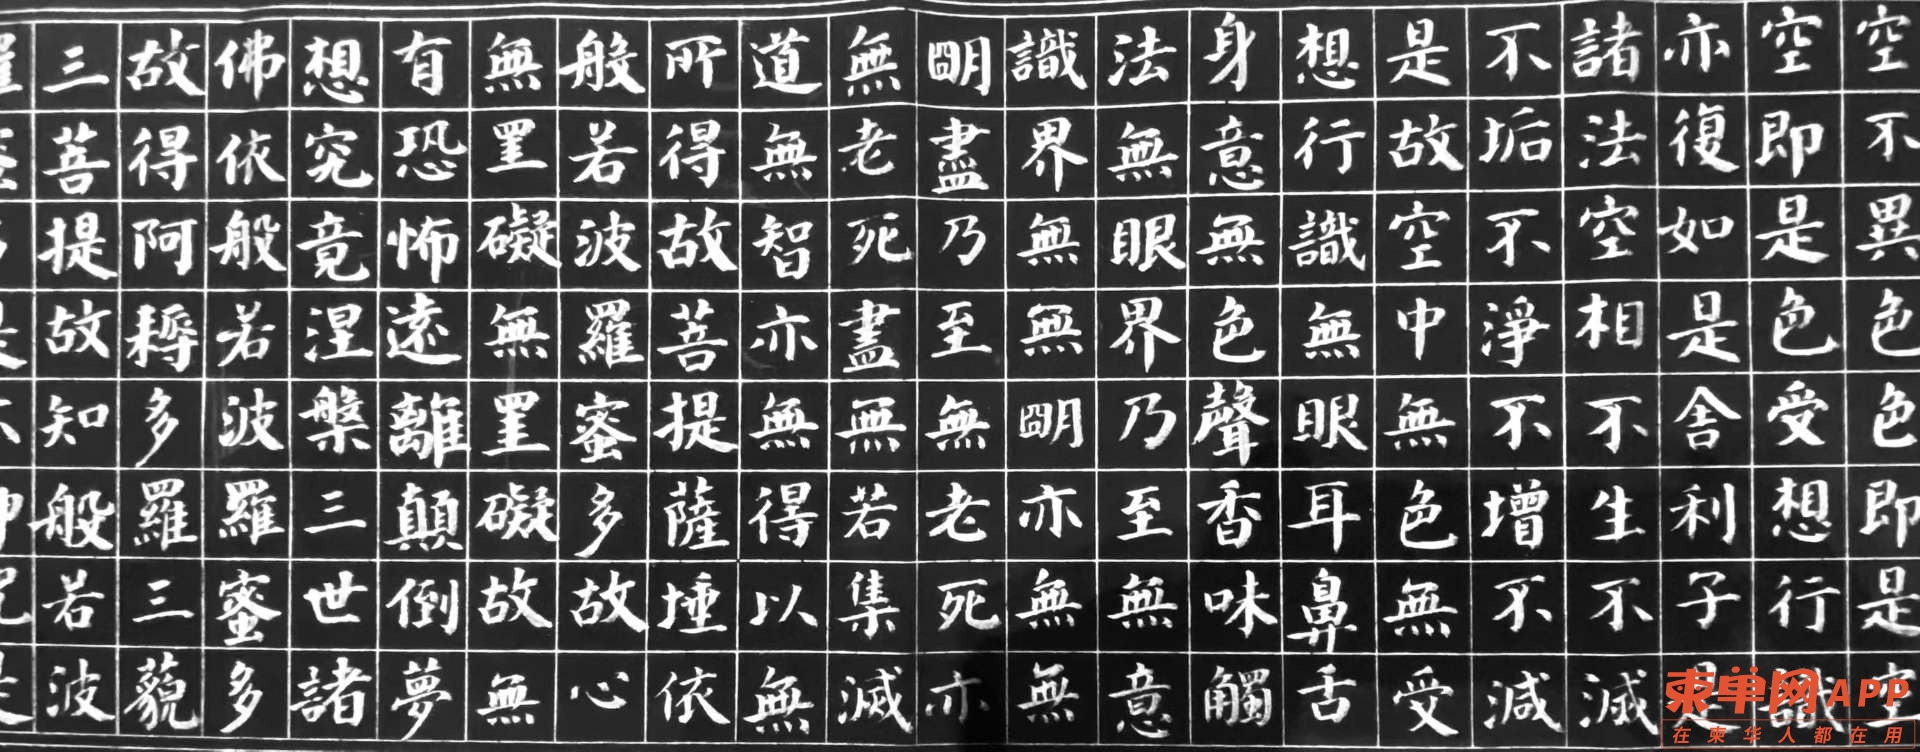 空不異色色即是空
空即是色受想行識
亦復如是舍利子是
諸法空相不生不滅
不垢不淨不增不減
是故空中無色無受
想行識無眼耳鼻舌
身意無色聲香味觸
法無眼界乃至無意
識界無無朙亦無無
朙盡乃至無老死亦
無老死盡無若集滅
道無智亦無得以無
所得故菩提薩埵依
般若波羅蜜多故心
無罣礙無罣礙故無
有恐怖遠離顛倒夢
想究竟涅槃三世諸
佛依般若波羅蜜多
故得阿耨多羅三藐
三菩提故知般若波
柬单网APP
在柬华人都在用